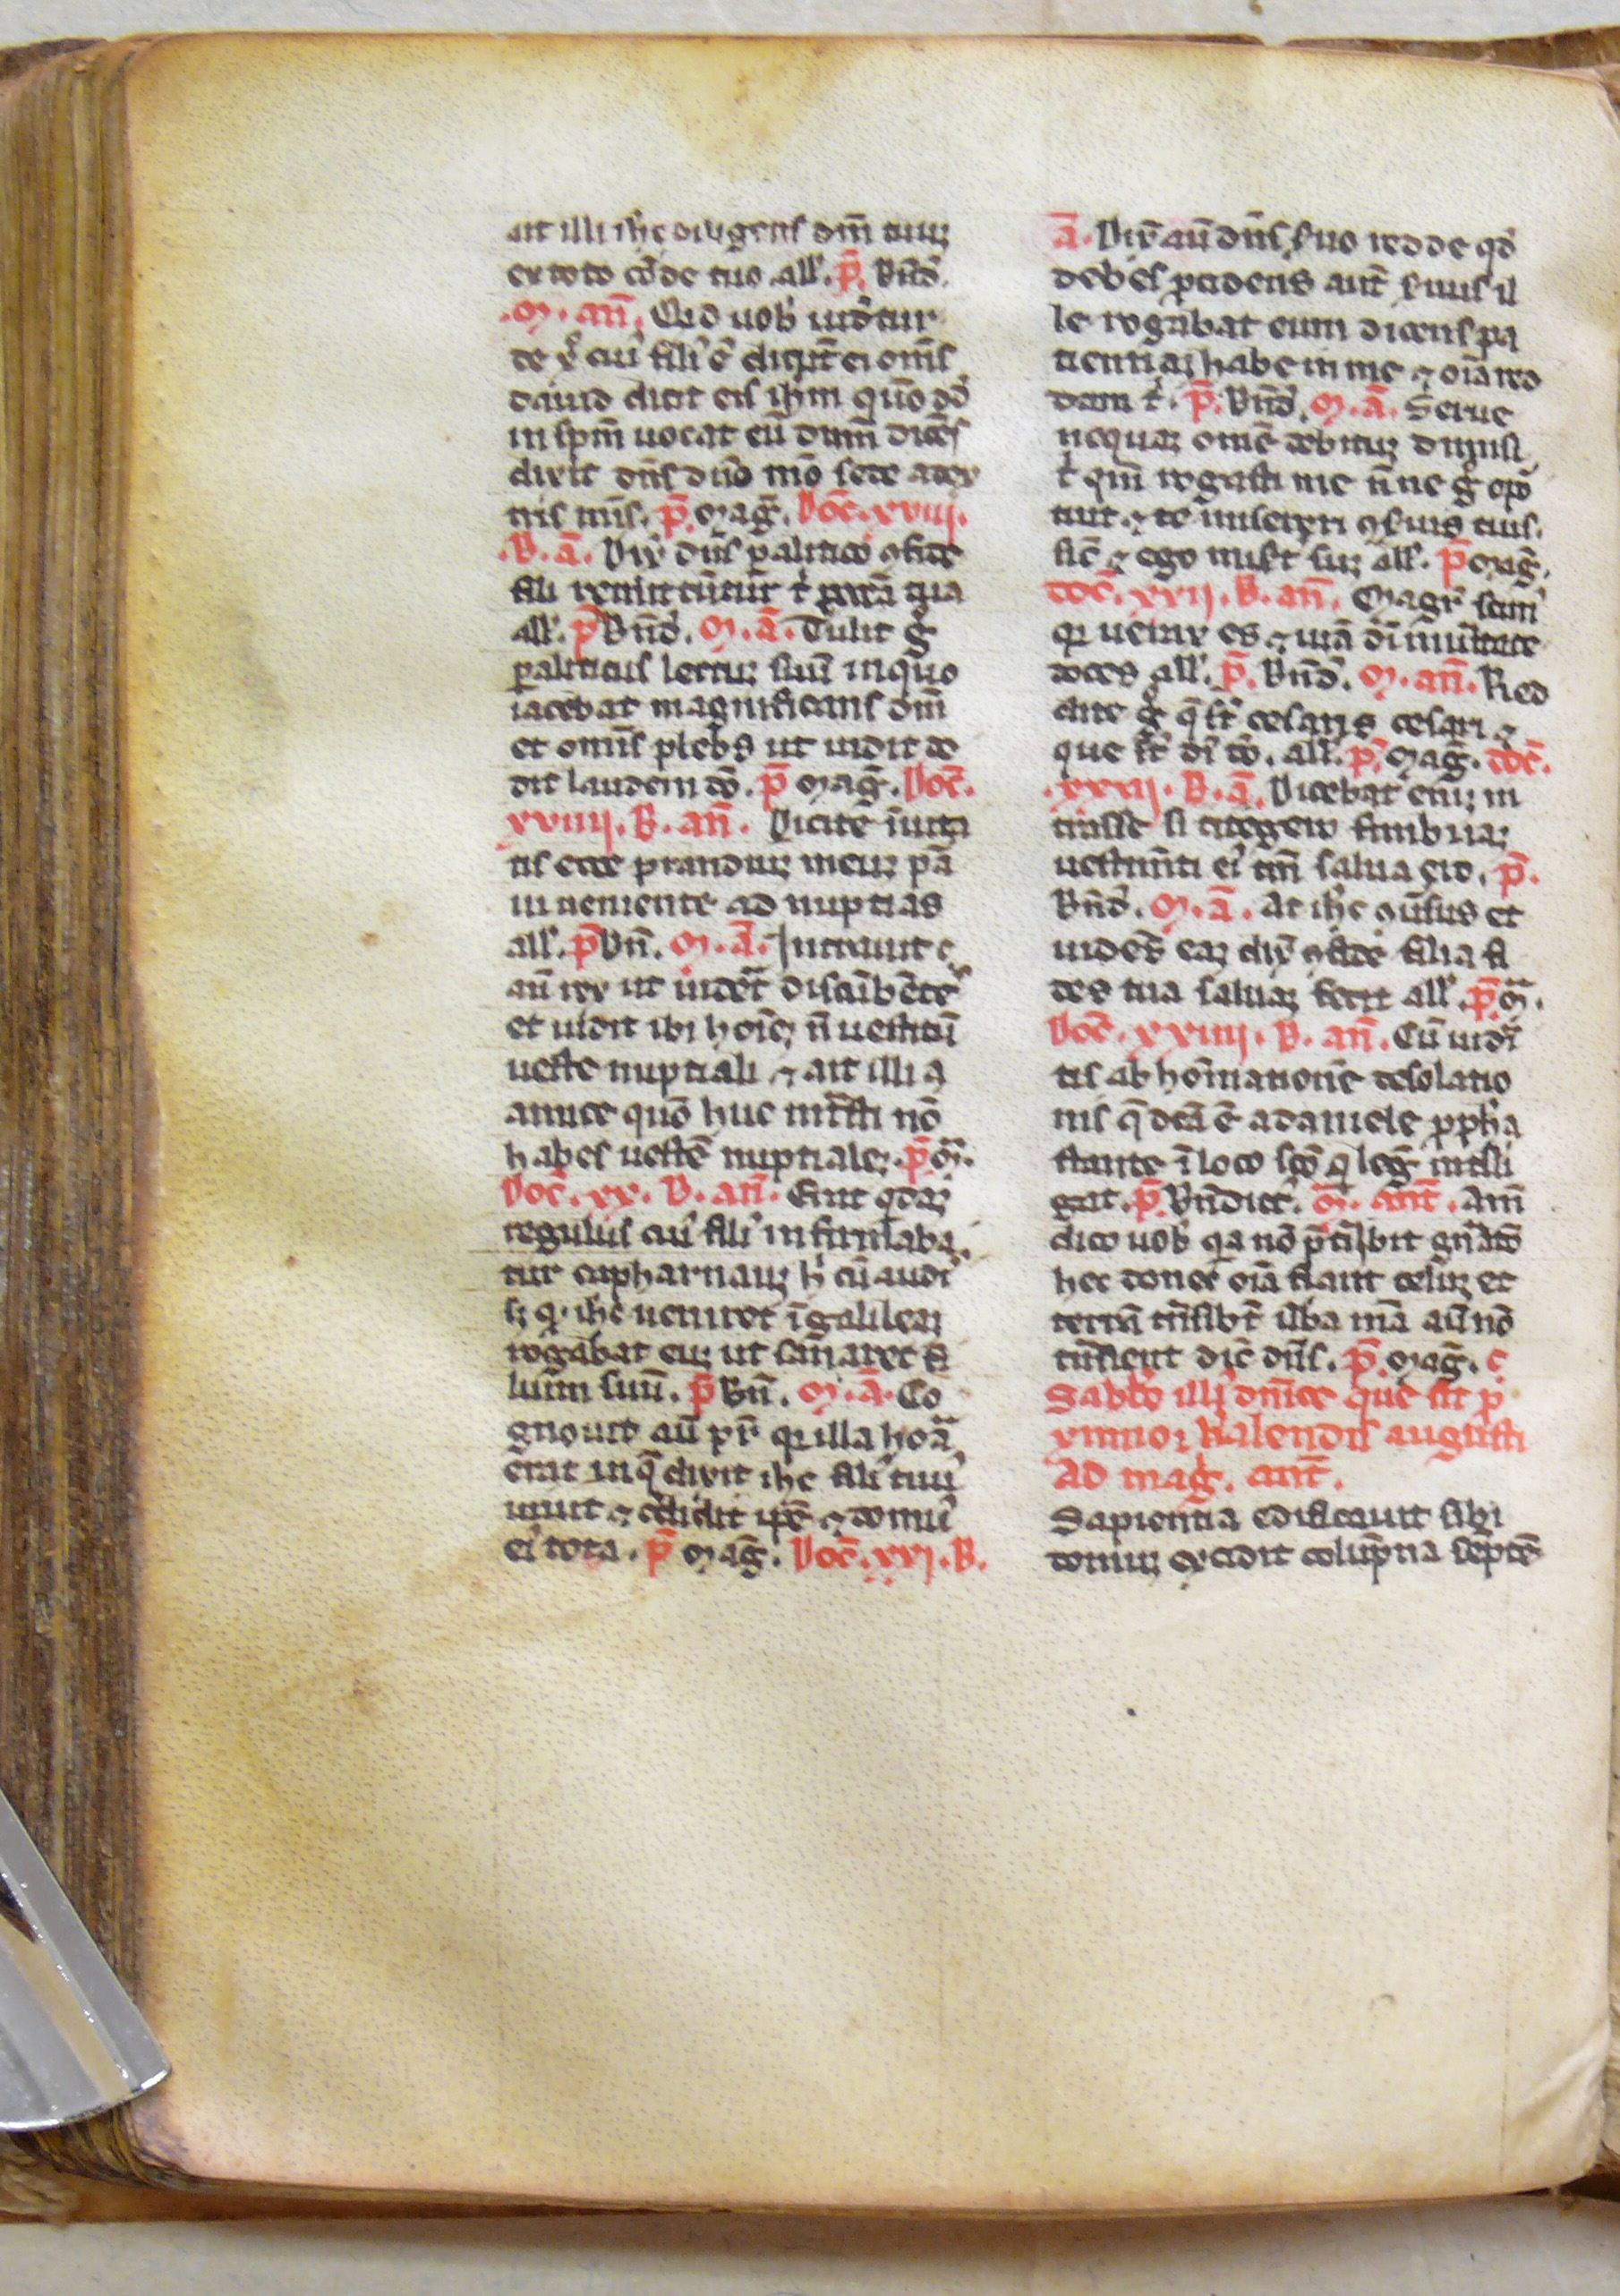 ait illi ihc diliges dm̄ tuuꝫ
ex toto cōde tuo. all'. p̄. Bn̄d'.
.M. an̄. Quid uob' uidetur
de x̄ cui' fili' ē dicūt ei om̄s
dauid dicit eis ihm quō dd
in spm̄ uocat eū dn̄m dicēs
dixit dn̄s dn̄o mō sede a dex
tris mis. p̄. Mag̅. Doc̄. xviij.
.B. a̅. Dix̄ dn̄s palitico ɔfide
fili remittūtur t' pccā tua
all'. p̄ Bn̄d'. M. a̅. Tulit g̊
paliticus lectuꝫ suū in quo
iacebat magnificans dm̄
et omis plebs ut uidit de
dit laudem dō. p̄ Mag̅. Doc̄.
xviiij. B. an̄. Dicite īuita
tis ecce prandiuꝫ meuꝫ pa̅
ui uenite ad nuptias
all'. p̄ Bn̄. M. a̅. Intrauit
aū rex ut uidēt discūbētes
et uidit ibi hoīeꝫ n̄ uestitū
ueste nuptiali ⁊ ait illi a
amice quō huc intrāsti nō
habes uestē nuptialeꝫ. p̄ M̄.
Doc̄. xx. B. an̄. Erat qdaꝫ
regulus cui' fili' infirmaba
tur capharnauꝫ h' cū audi
sꝫ q' ihc ueniret ī galileaꝫ
rogabat euꝫ ut sanaret fi
lium suū. p̄ Bn̄. M. a̅. Co
gnouit aū pr̄ q' illa hora
erat in q̄ dixit ihc fili' tuu'
uiuit ⁊ c̄didit ip̄e ⁊ domu'
ei' tota. p̄ Mag̅. Doc̄. xxj. B.
a̅. Dix̄ aū dn̄s suo redde qd'
debes pcidens aūt suus il
le rogabat eum dicens pa
tientiaꝫ habe in me ⁊ oīa red
dam t'. p̄. Bn̄d'. M. a̅. Serue
nequaꝫ omē debituꝫ dimisi
t' qm̄ rogasti me n̄ne g̊ opor
tuit ⁊ te misereri ɔseruis tuis.
sic̄ ⁊ ego misert' suꝫ all'. p̄ Mag̅.
doc̄. xxij. B. an̄. Magr̄ scim'
q' uerax es ⁊ uiā dī in ueritate
doces all'. p̄. Bn̄d'. M. an̄. Red
dite g̊ q̄ st̄ cesaris cesari ⁊
que st̄ dī dō. all'. p̄. Mag̅. doc̄.
.xxiij. B. a̅. Dicebat eniꝫ in
tra se si tetigero fimbriaꝫ
uestim̄ti ei' tm̄ salua ero. p̄.
Bn̄d'. M. a̅. At ihc ɔūsus et
uidēs eaꝫ dix̄ ɔfide filia fi
des tua saluaꝫ fecit all'. p̄ M̄.
Doc̄. xxiiij. B. an̄. Cū uidī
tis abhoīnationē desolatio
nis q̄ dc̄a ē a daniele p̄pha
stante ī loco sc̄o q' leg̅ intelli
gat. p̄. Bn̄dict'. M̄. ant̄. Am̄
dico uob' qa nō p̄t̄ibit gn̄atō
hec donec oīa fiant celuꝫ et
terrā tn̄sibt̄ ūba mā aū nō
tn̄sient dic̄ dn̄s. p̄. Mag̅.
Sabb̄o illi' dn̄ice que fit p
ximior kalendis augusti
Ad mag̅. ant̄.
Sapientia edificauit sibi
domuꝫ excidit colūpna septē